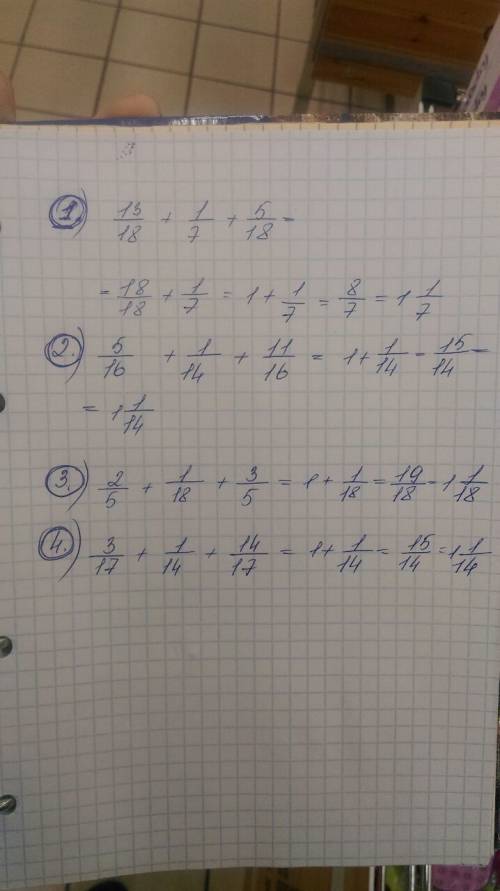 1.) 13/18 + 1/7 + 5/18 =
= 18/18 + 1/7 = 1 + 1/7 = 8/7 = 1 1/7
2.) 5/16 + 1/14 + 11/16 = 1 + 1/14 = 15/14 =
= 1 1/14
3.) 2/5 + 1/18 + 3/5 = 1 + 1/18 = 19/18 = 1 1/18
4.) 3/17 + 1/14 + 14/17 = 1 + 1/14 = 15/14 = 1 1/14